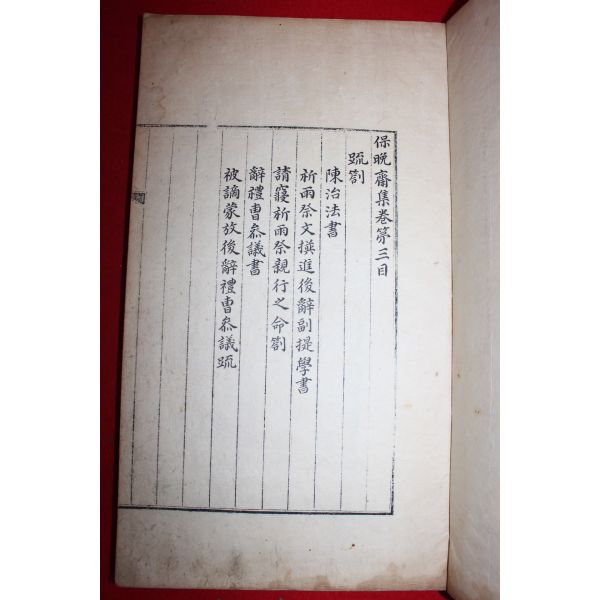 保晩齋集卷第三目
疏劄
陳治法書
祈雨祭文撰進後辭副提學書
請寢祈雨祭親行之命劄
辭禮曹叅議書
被謫蒙放後辭禮曹叅議疏